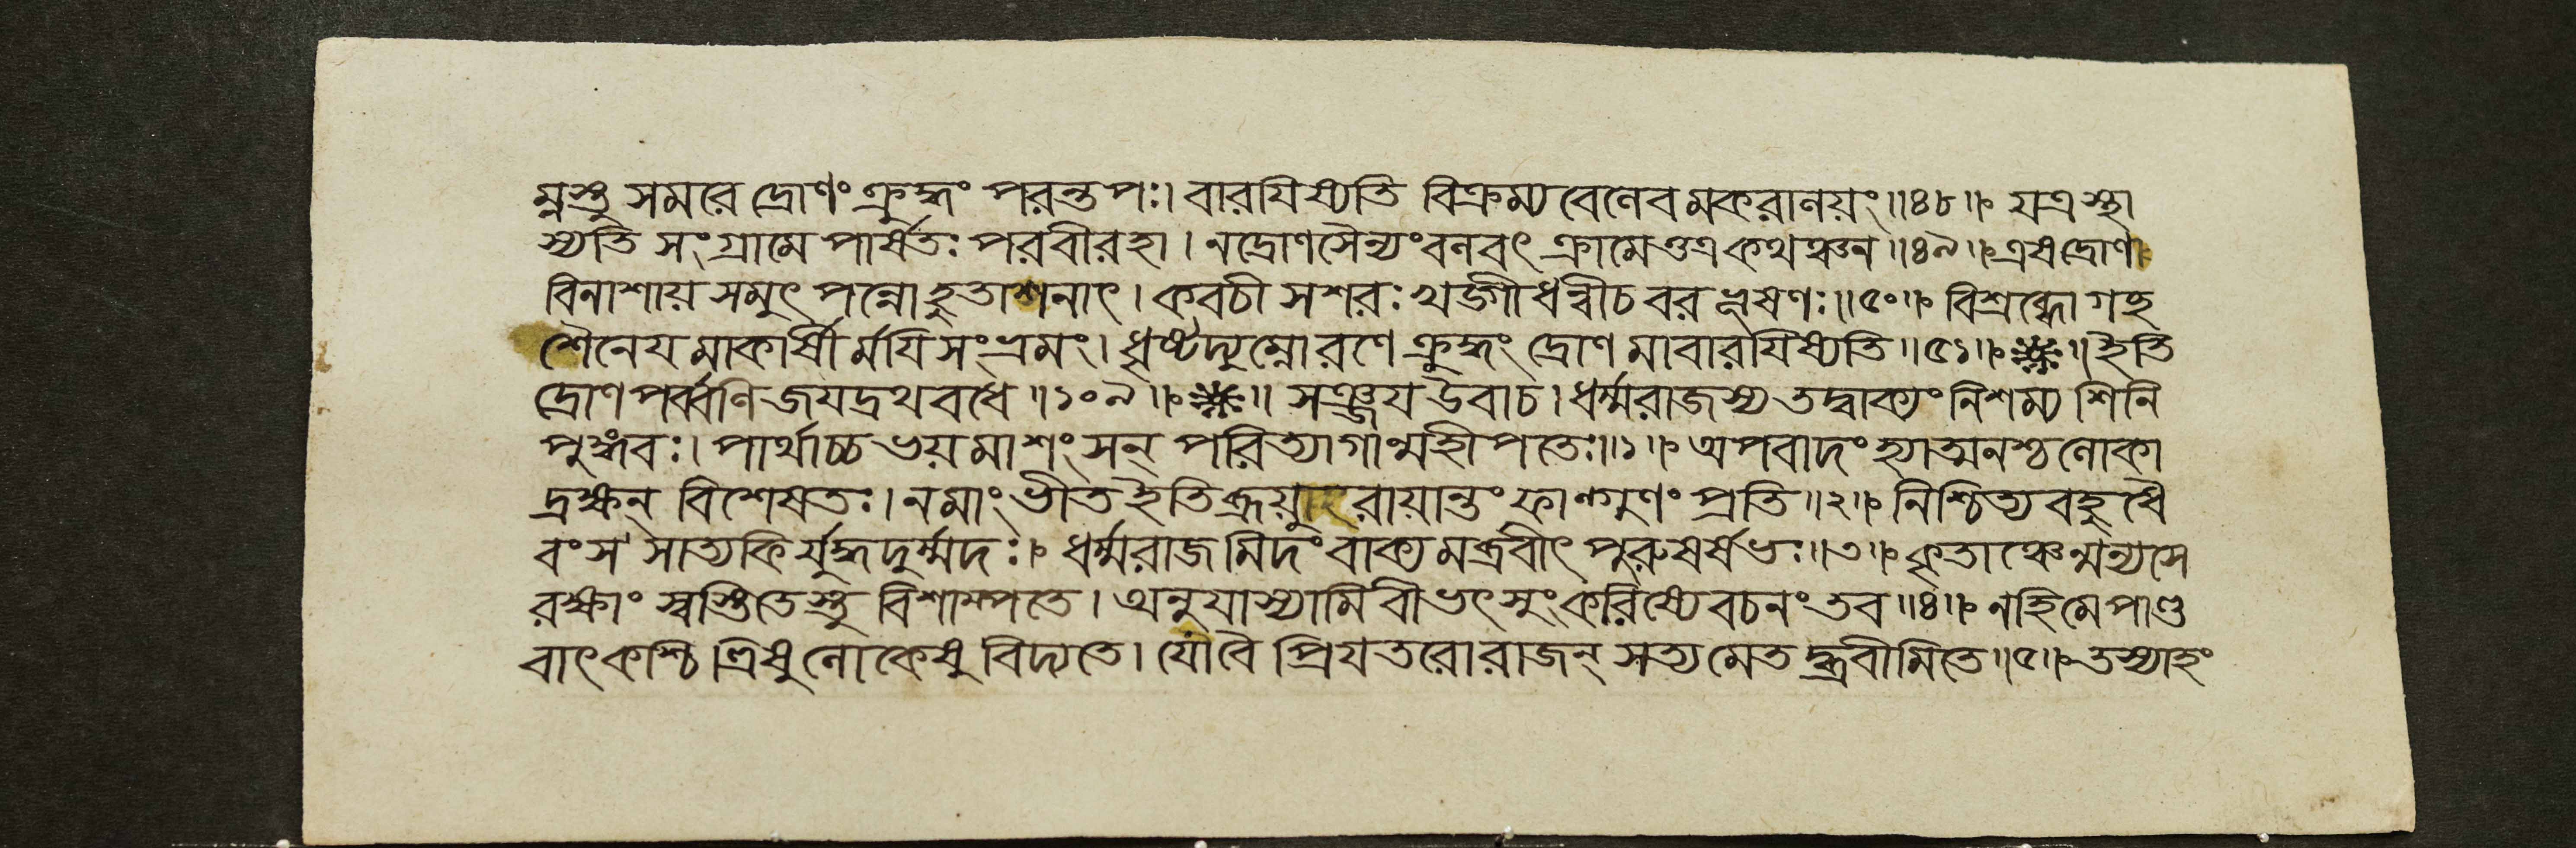 ম্নস্তু সমরে দ্রোণং ক্রুদ্ধং পরন্তপঃ। বারযিষ্যতি বিক্রম্য বেলেব মকরালয়ং॥৪৮॥ যত্র স্থা
স্যতি সংগ্রামে পার্ষতঃ পরবীরহা। ন দ্রোণসৈন্যং বলবৎ ক্রামেত্তত্র কথঞ্চন॥৪৯॥ এষ দ্রোণ
বিনাশায় সমুৎপন্নো হুতাশনাৎ। কবচী সশরঃ খড্গী ধন্বী চ বরভূষণঃ॥৫০॥ বিশ্রব্ধো গচ্ছ
শৈনেয মাকার্ষীর্ময়ি সংভ্রমং। ধৃষ্টদ্যুম্নো রণে ক্রুদ্ধং দ্রোণমাবারযিষ্যতি॥৫১॥ ইতি
দ্রোণপর্ব্বণি জযদ্রথবধে॥১০৯॥ সঞ্জয উবাচ। ধর্ম্মরাজস্য তদ্বাক্যং নিশম্য শিনি
পুঙ্গবঃ। পার্থাচ্চ ভয়মাশংসন্ পরিত্যাগান্মহীপতেঃ॥১॥ অপবাদং হ্যাত্মনশ্চ লোকা
দ্রক্ষন্ বিশেষতঃ। ন মাং ভীত ইতি ব্রূয়ুরায়ান্তং ফাল্গুণং প্রতি॥২॥ নিশ্চিত্য বহুধৈ
বং স সাত্যকির্যুদ্ধদুর্ম্মদঃ। ধর্ম্মরাজমিদং বাক্যমব্রবীৎ পুরুষর্ষভঃ॥৩॥ কৃতাঞ্চেন্মন্যসে
রক্ষাং স্বস্তি তেস্তু বিশাম্পতে। অনুযাস্যামি বীভৎসুং করিষ্যে বচনং তব॥৪॥ নহি মে পাণ্ড
বাৎ কশ্চিত্রিষু লোকেষু বিদ্যতে। যো বৈ প্রিযতরো রাজন্ সত্যমেতদ্ব্রবীমি তে॥৫॥ তস্যাহং